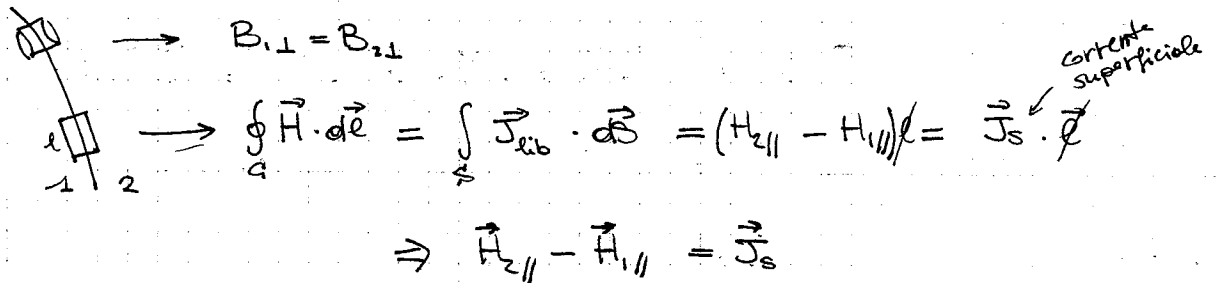 → B₁⊥ = B₂⊥
corrente
superficiale
l → ∮_C H⃗ · dl⃗ = ∫_S J⃗_lib · dS⃗ = (H₂∥ − H₁∥)l = J⃗_s · l⃗
1 2
⇒ H⃗₂∥ − H⃗₁∥ = J⃗_s